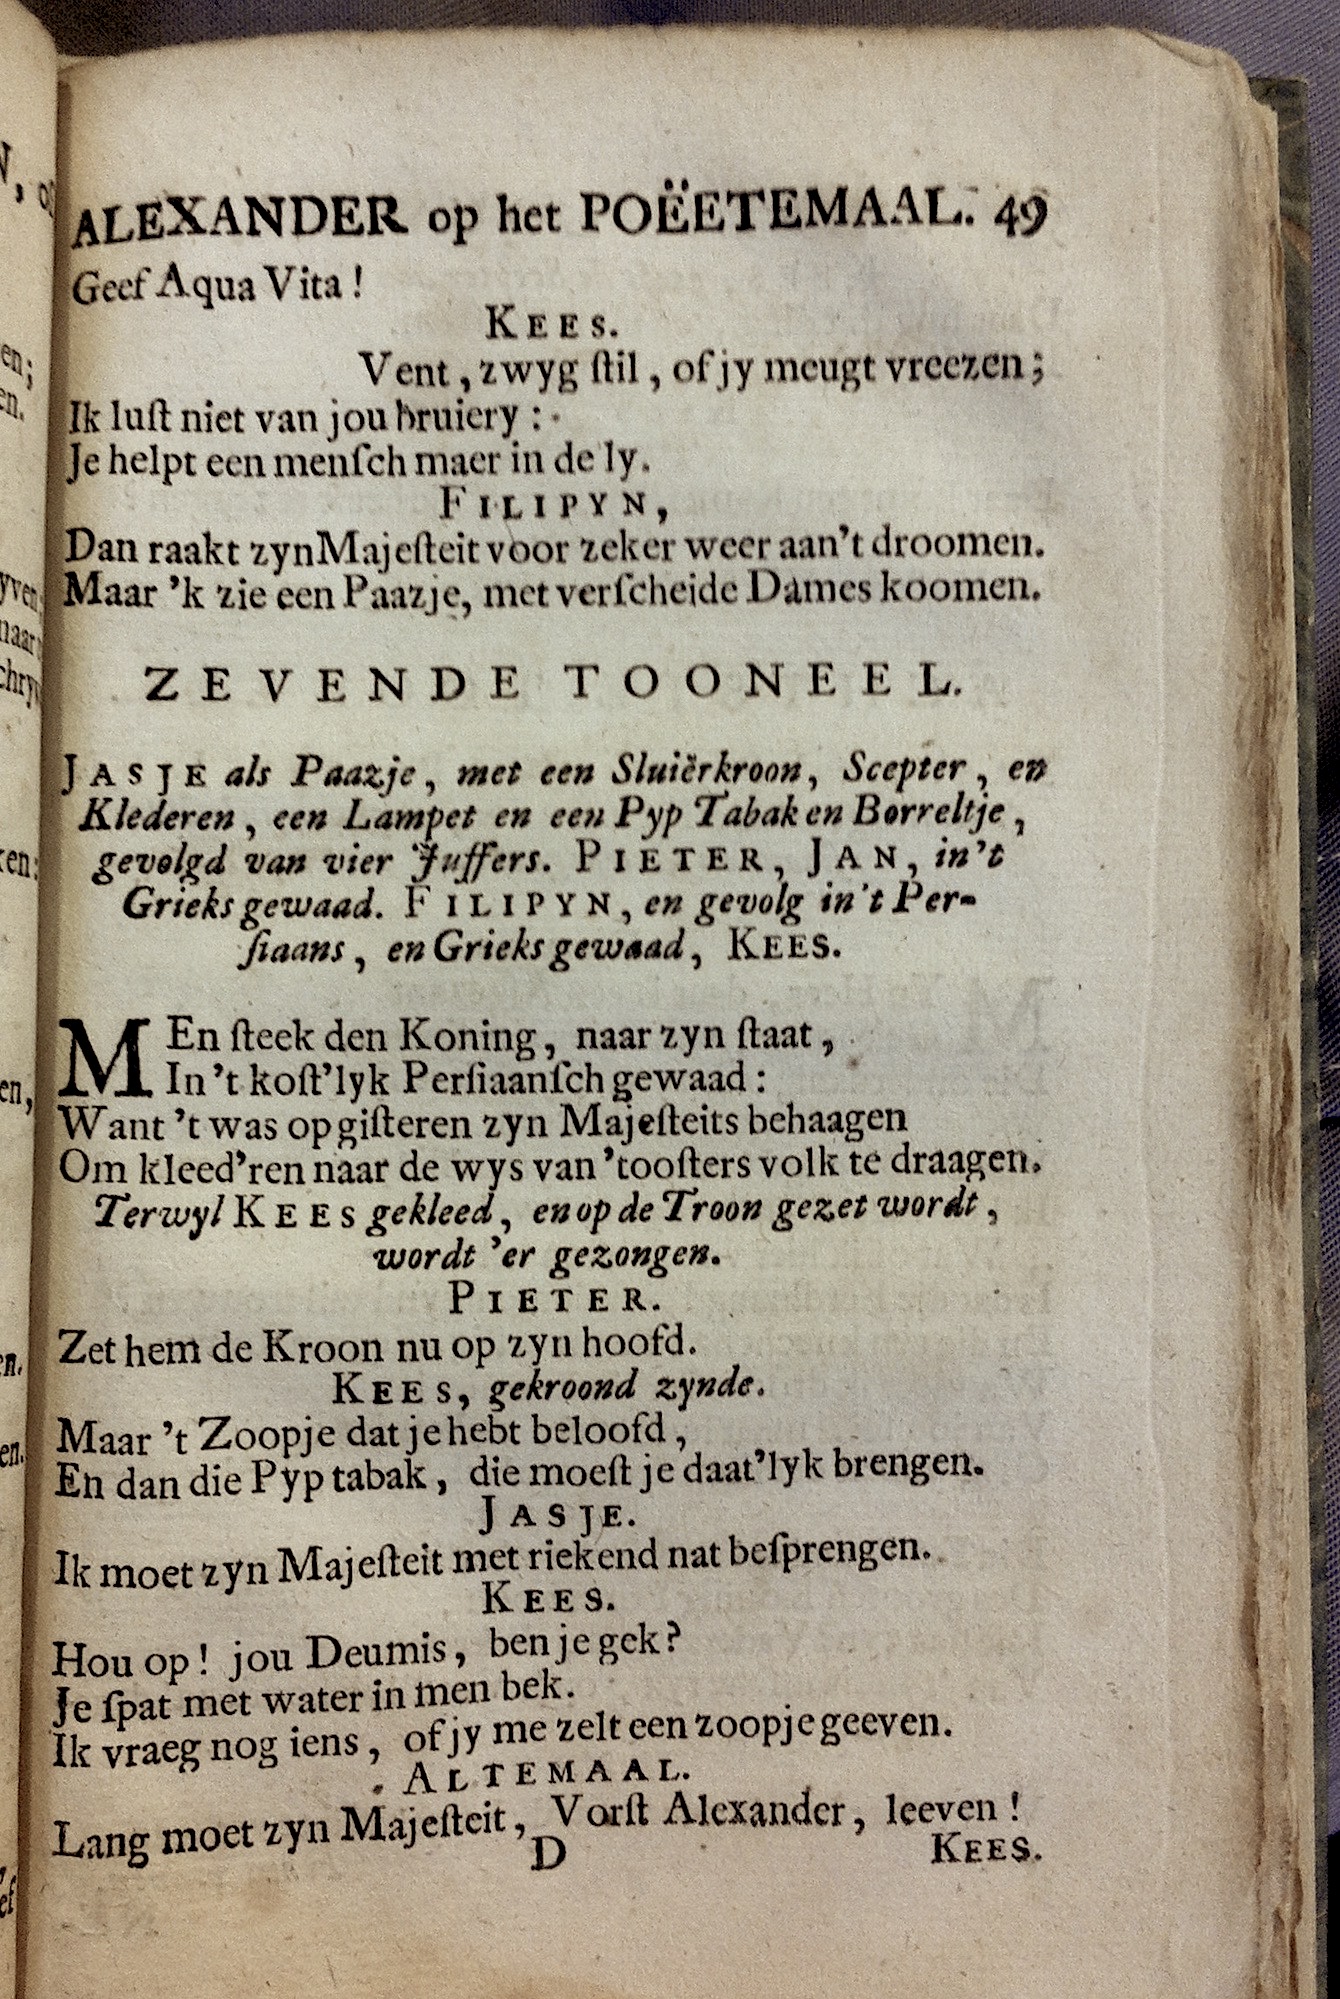 ALEXANDER op het POËETEMAAL. 49
Geef Aqua Vita !
KEES.
Vent, zwyg ſtil, of jy meugt vreezen;
Ik luſt niet van jou bruiery :
Je helpt een menſch maer in de ly.
FILIPYN,
Dan raakt zyn Majeſteit voor zeker weer aan't droomen.
Maar 'k zie een Paazje, met verſcheide Dames koomen.
ZEVENDE TOONEEL.
JASJE als Paazje, met een Sluiërkroon, Scepter, en
Klederen, een Lampet en een Pyp Tabak en Borreltje,
gevolgd van vier Juffers. PIETER, JAN, in't
Grieks gewaad. FILIPYN, en gevolg in't Per-
ſiaans, en Grieks gewaad, KEES.
MEn ſteek den Koning, naar zyn ſtaat,
In 't koſt'lyk Perſiaanſch gewaad :
Want 't was op giſteren zyn Majeſteits behaagen
Om kleed'ren naar de wys van 'tooſters volk te draagen.
Terwyl KEES gekleed, en op de Troon gezet wordt,
wordt 'er gezongen.
PIETER.
Zet hem de Kroon nu op zyn hoofd.
KEES, gekroond zynde.
Maar 't Zoopje dat je hebt beloofd,
En dan die Pyp tabak, die moeſt je daat'lyk brengen.
JASJE.
Ik moet zyn Majeſteit met riekend nat beſprengen.
KEES.
Hou op! jou Deumis, ben je gek?
Je ſpat met water in men bek.
Ik vraeg nog iens, of jy me zelt een zoopje geeven.
ALTEMAAL.
Lang moet zyn Majeſteit, Vorſt Alexander, leeven !
D KEES.